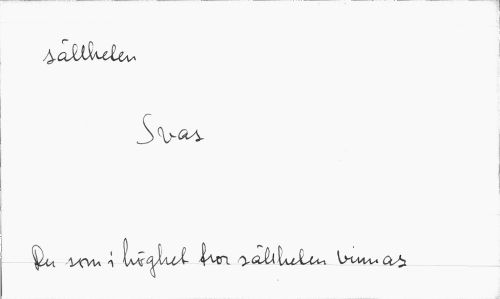 sällheten
Svas
Du som i höghet tror sällheten vinnas